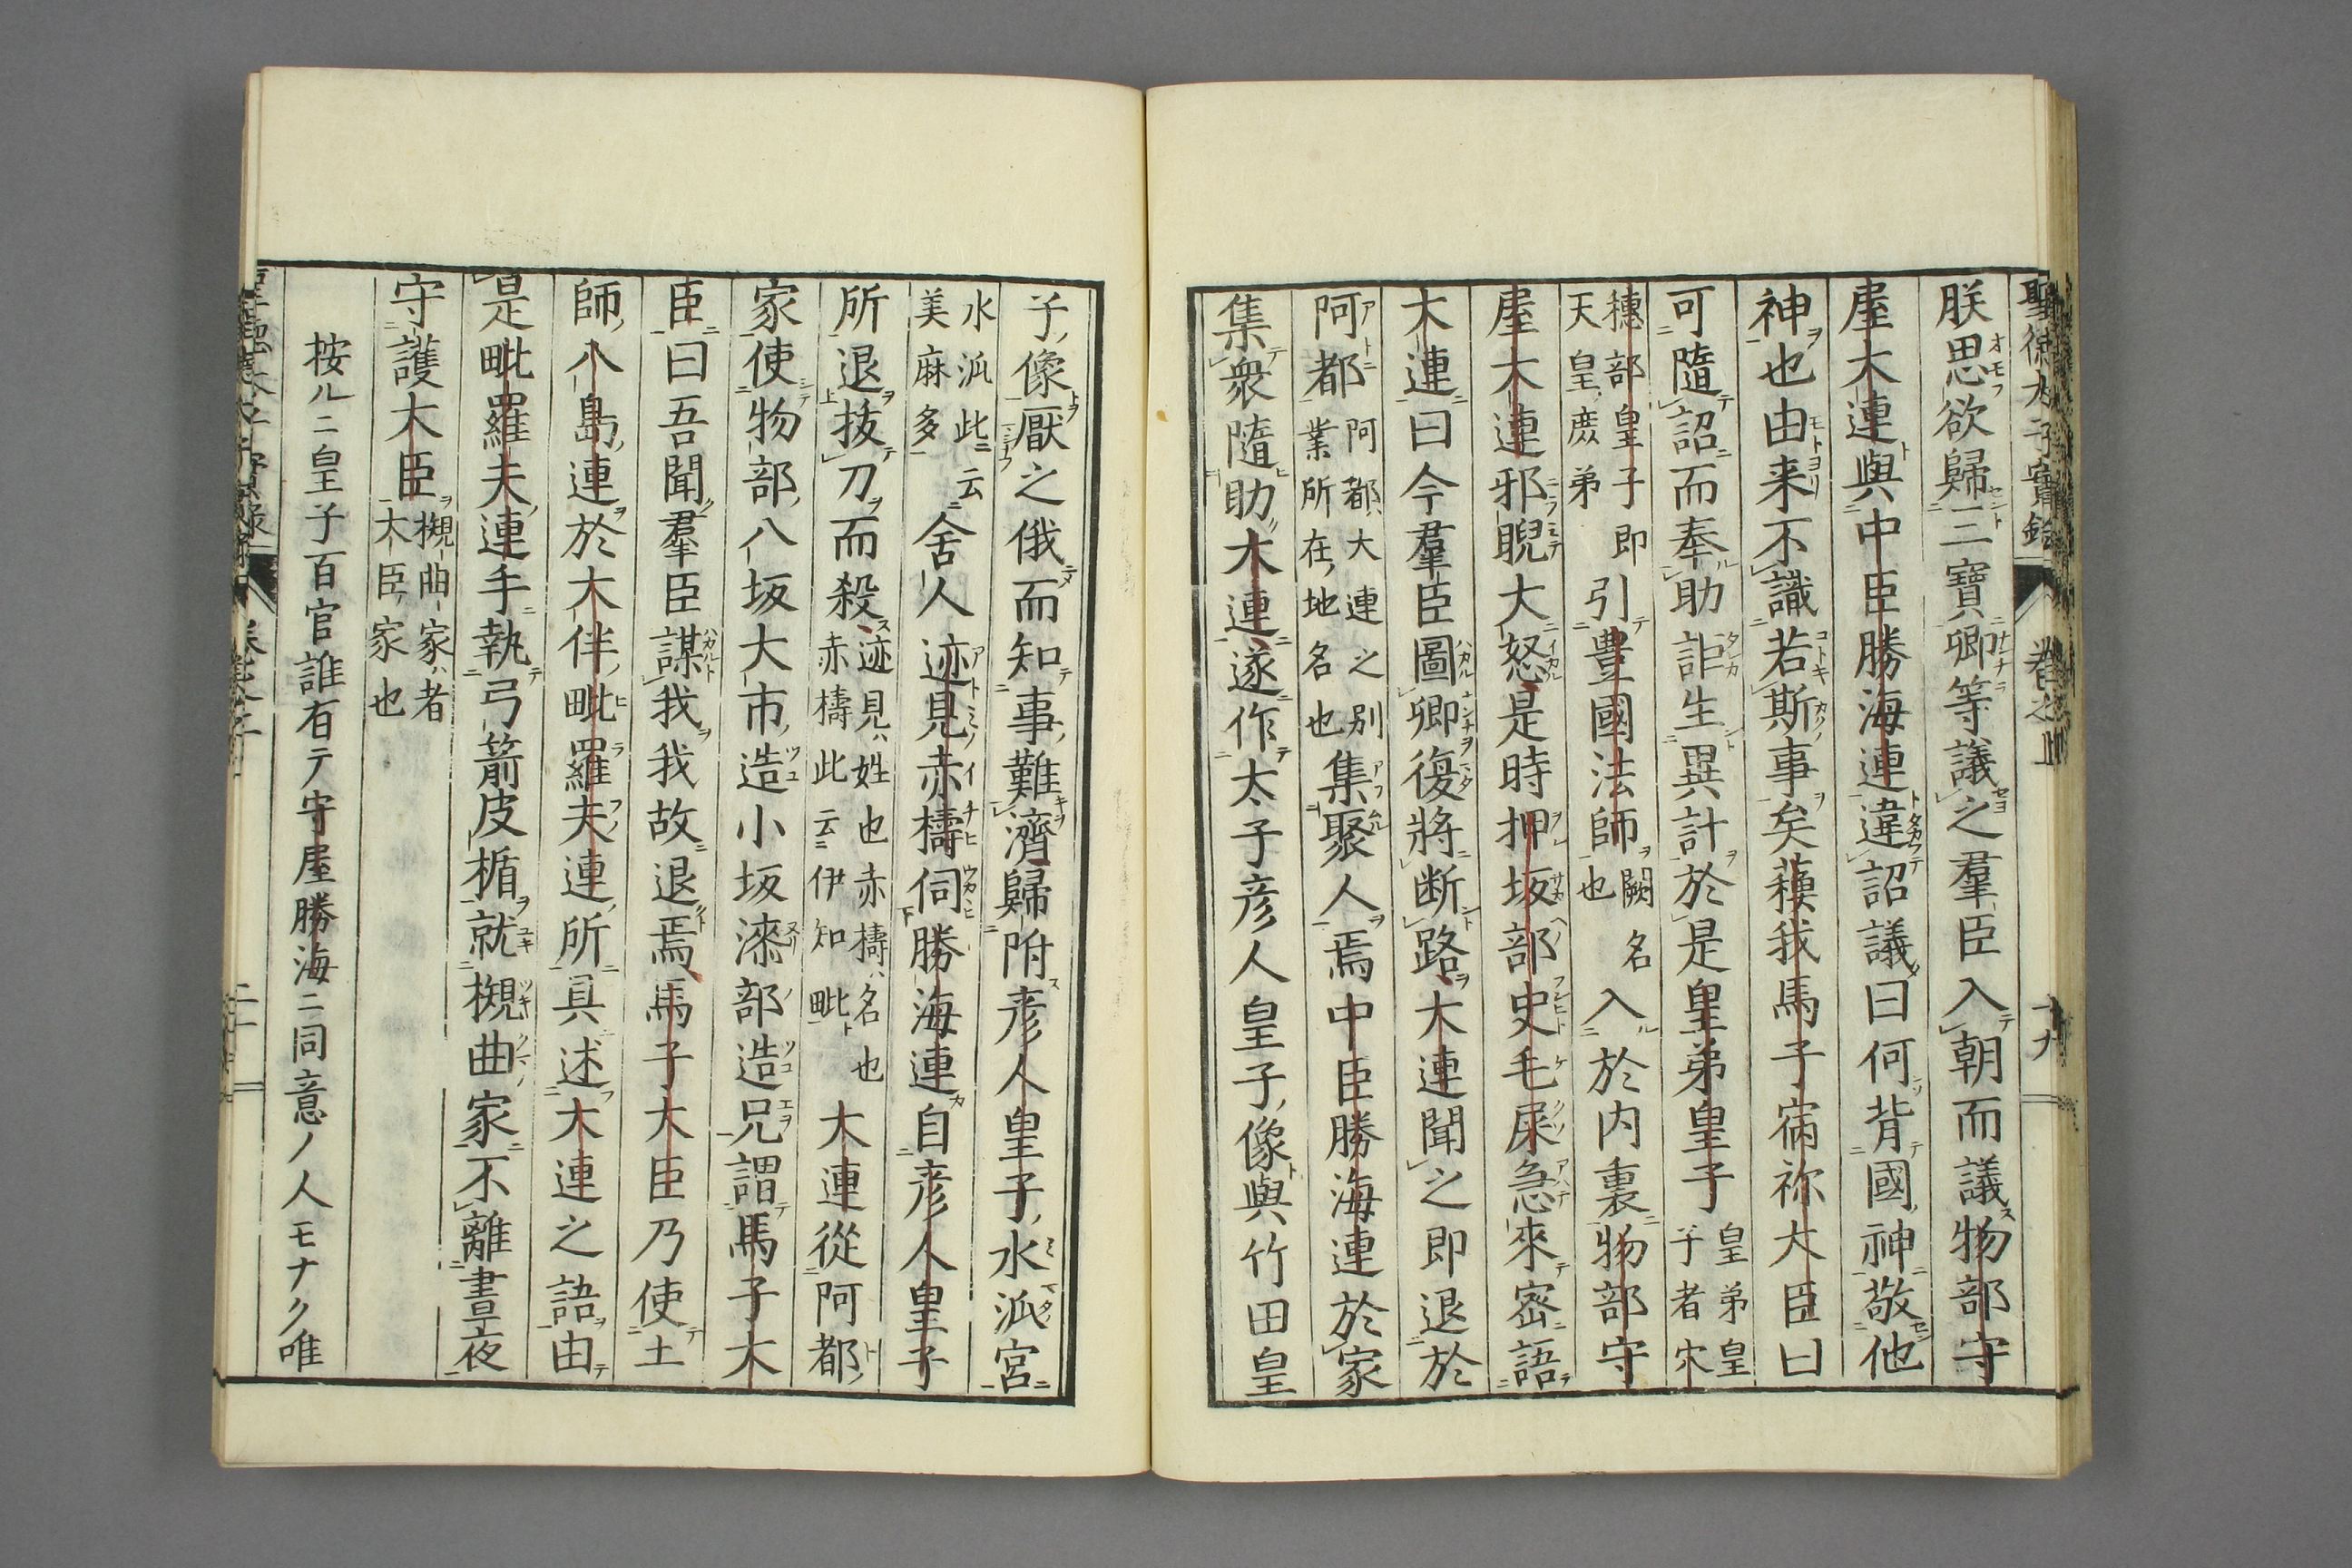 朕思欲歸三寶卿等議之羣臣入朝而議物部守
屋大連與中臣勝海連違詔議曰何背國神敬他
神也由来不識若斯事矣蘓我馬子宿祢大臣曰
可隨詔而奉助詎生異計於是皇弟皇子皇弟皇子者穴
穗部皇子即天皇庶弟引豊國法師闕名也入於内裏物部守
屋大連邪睨大怒是時押坂部史毛屎急來密語
大連曰今羣臣圖卿復將断路大連聞之即退於
阿都阿都大連之別業所在地名也集聚人焉中臣勝海連於家
集衆隨助大連遂作太子彦人皇子像與竹田皇
子像厭之俄而知事難濟歸附彦人皇子水泒宮
水泒此云美麻多舍人迹見赤檮伺勝海連自彦人皇子
所退抜刀而殺迹見ハ姓也赤檮ハ名也赤檮此云伊知毗大連從阿都
家使物部八坂大市造小坂漆部造兄謂馬子大
臣曰吾聞羣臣謀我我故退焉馬子大臣乃使土
師八島連於大伴毗羅夫連所具述大連之語由
是毗羅夫連手執弓箭皮楯就槻曲家不離晝夜
守護大臣槻曲家ハ者大臣家也
按ルニ皇子百官誰有テ守屋勝海ニ同意ノ人モナク唯